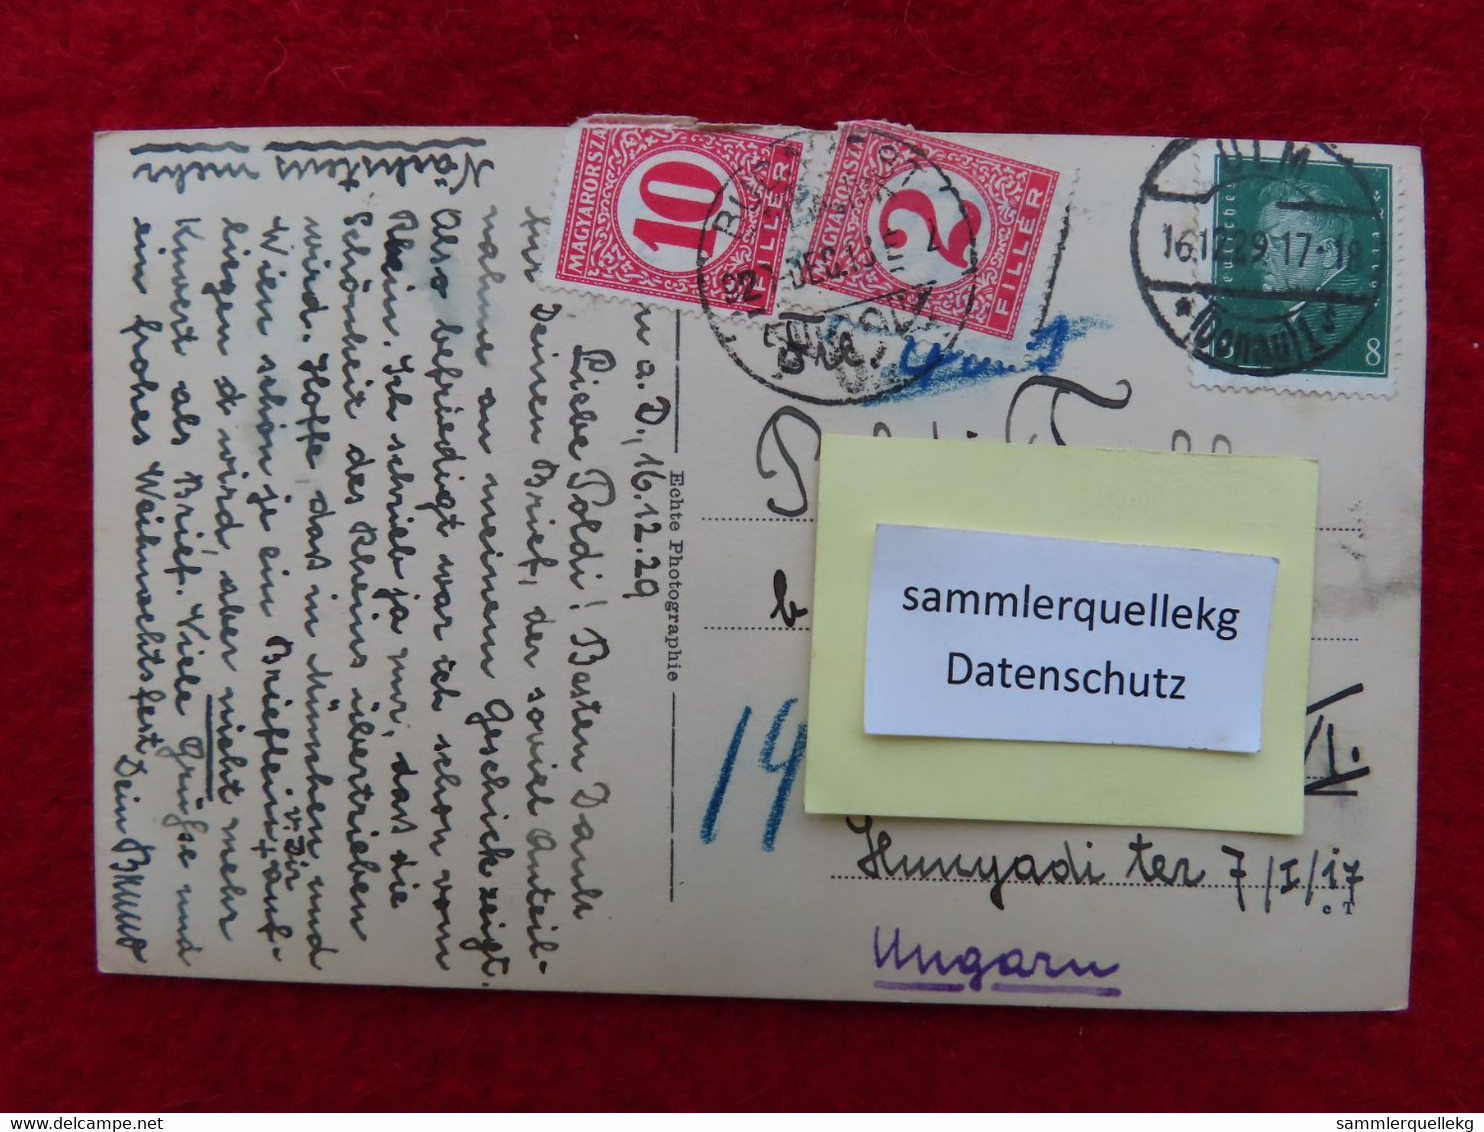 n a. D., 16.12.29
Liebe Poldi! Besten Dank
für Deinen Brief, der soviel Anteil-
nahme an meinem Geschick zeigt.
Also befriedigt war ich schon vom
Rhein. Ich schrieb ja nur, dass die
Schönheit des Rheins übertrieben
wird. Hoffe, dass in München und
Wien schon je ein Brieflein v. Dir auf-
liegen d wird, aber nicht mehr
Kuvert als Brief. Viele Grüsse und
ein frohes Weihnachtsfest Dein Bruno
Nächstens mehr
Echte Photographie
MAGYARORSZÁ
10
FILLÉR
MAGYARORSZÁ
2
FILLÉR
BUDAPEST
929 DEC.
ULM
16.12.29.17-18
* (Donau) 1
Deutsche
8
b
14
sammlerquellekg
Datenschutz
/I.
Hunyadi ter 7/I/17
c T
Ungarn
delcampe.net
sammlerquellekg